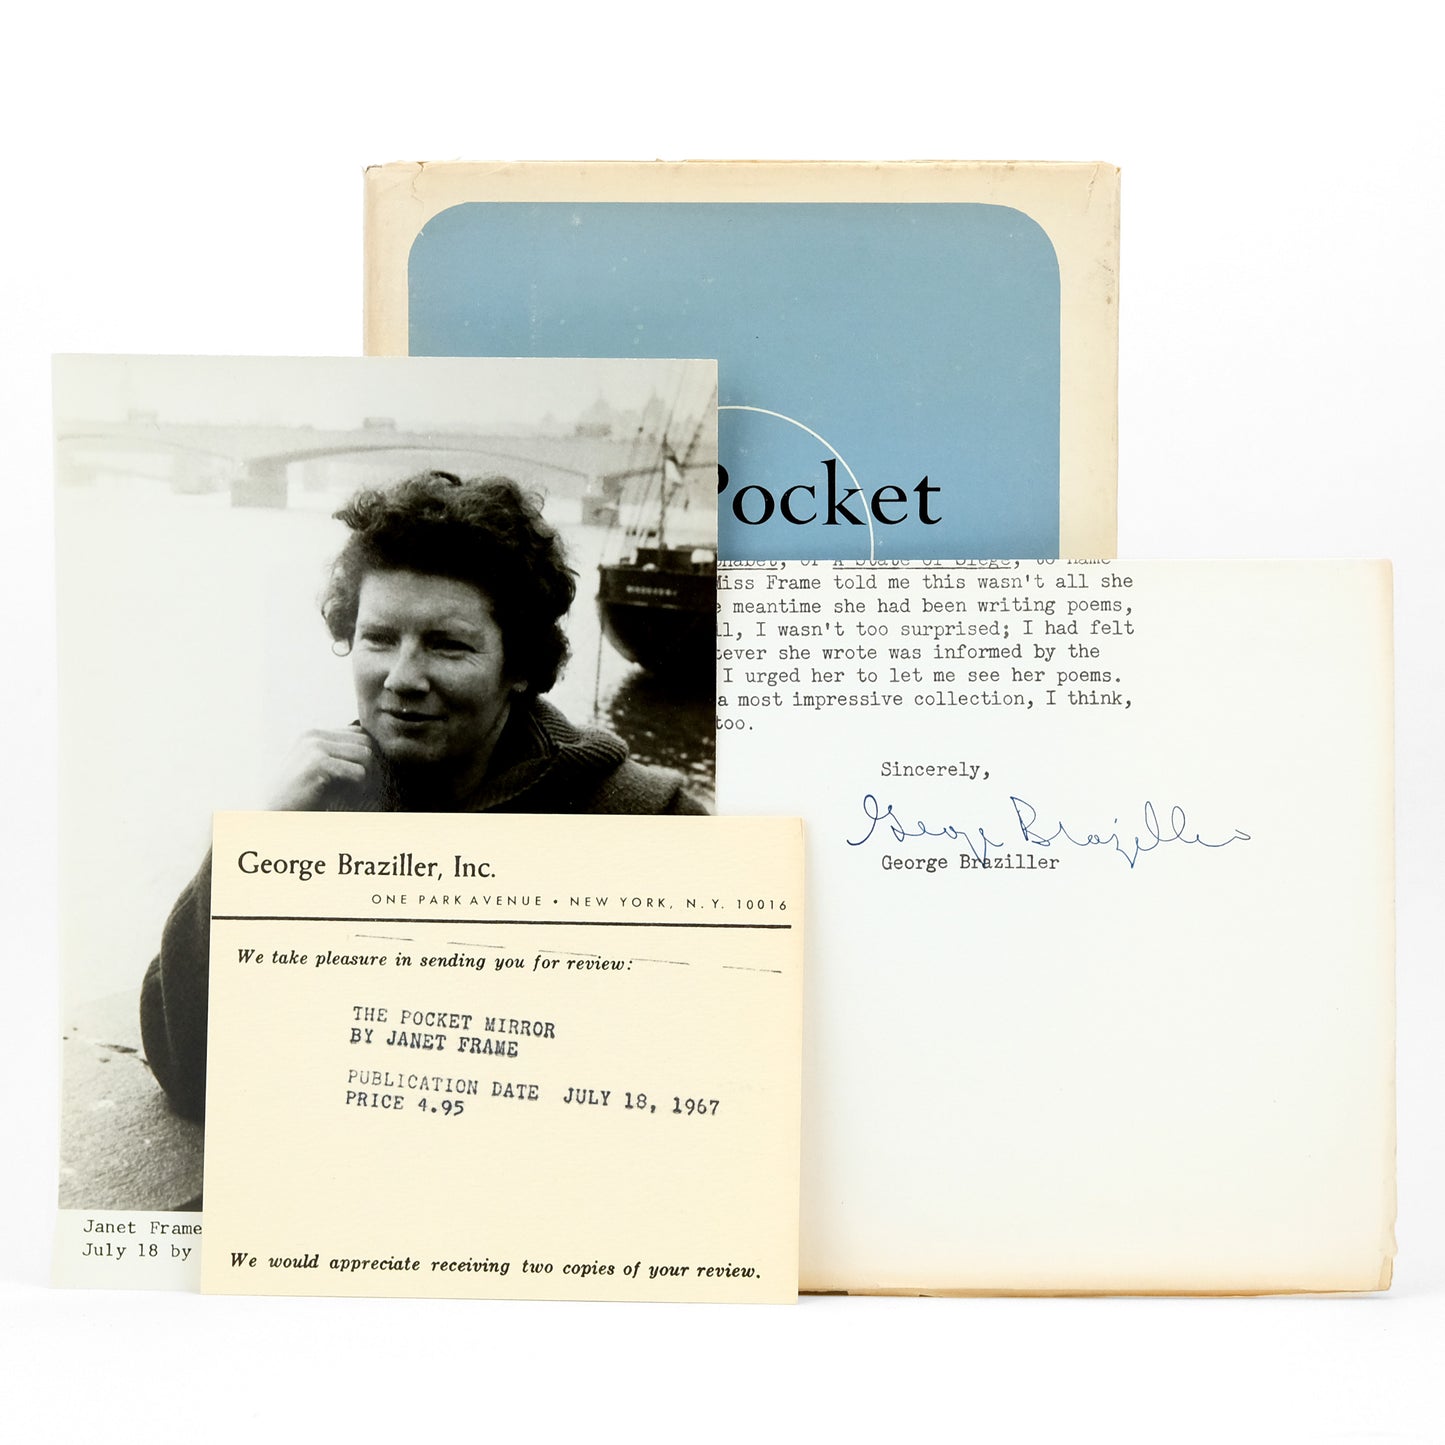 Pocket
or A State of Siege, to name
Miss Frame told me this wasn't all she
meantime she had been writing poems,
I wasn't too surprised; I had felt
she wrote was informed by the
I urged her to let me see her poems.
a most impressive collection, I think,
too.
Sincerely,
George Braziller
George Braziller
George Braziller, Inc.
ONE PARK AVENUE • NEW YORK, N.Y. 10016
We take pleasure in sending you for review:
THE POCKET MIRROR
BY JANET FRAME
PUBLICATION DATE JULY 18, 1967
PRICE 4.95
We would appreciate receiving two copies of your review.
Janet Frame
July 18 by